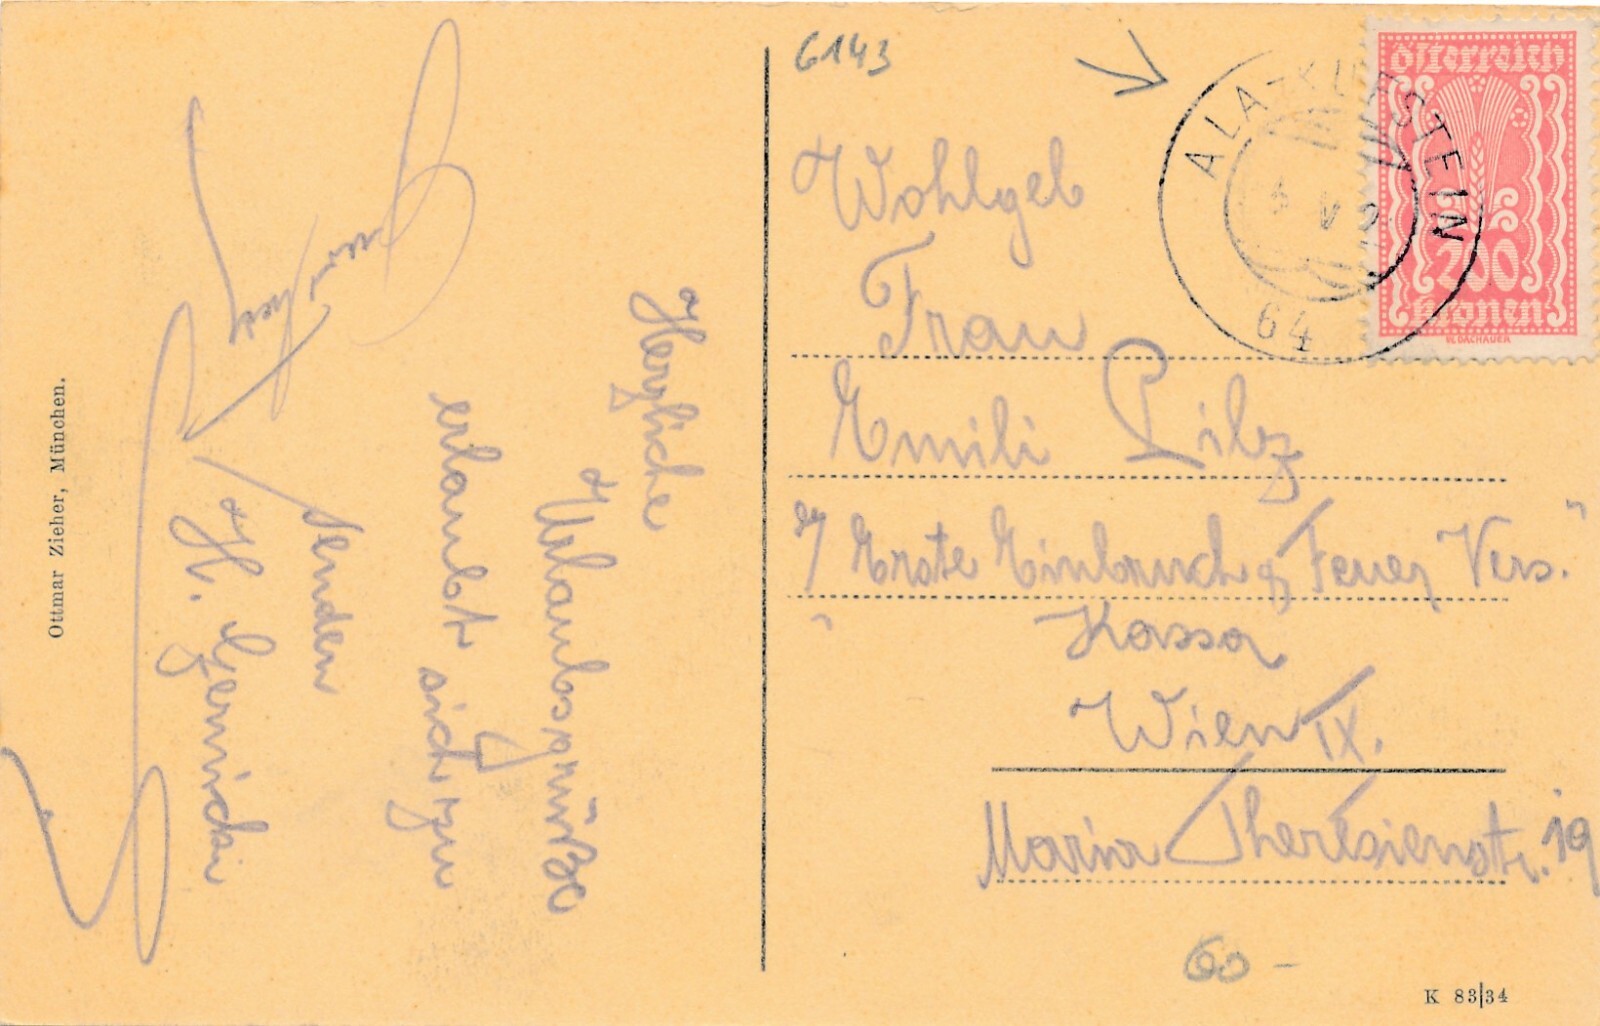 Ottmar Zieher, München.
Herzliche
Urlaubsgrüße
erlaubt sich zu
senden
H.
6143
ALA-KUFSTEIN
V
64
österreich
200
kronen
W.DACHAUER
Wohlgeb
Frau
Emili Pilz
Erste Einbruch & Feuer Vers."
Kassa
Wien IX.
Maria Theresienstr. 19
60 -
K 83/34